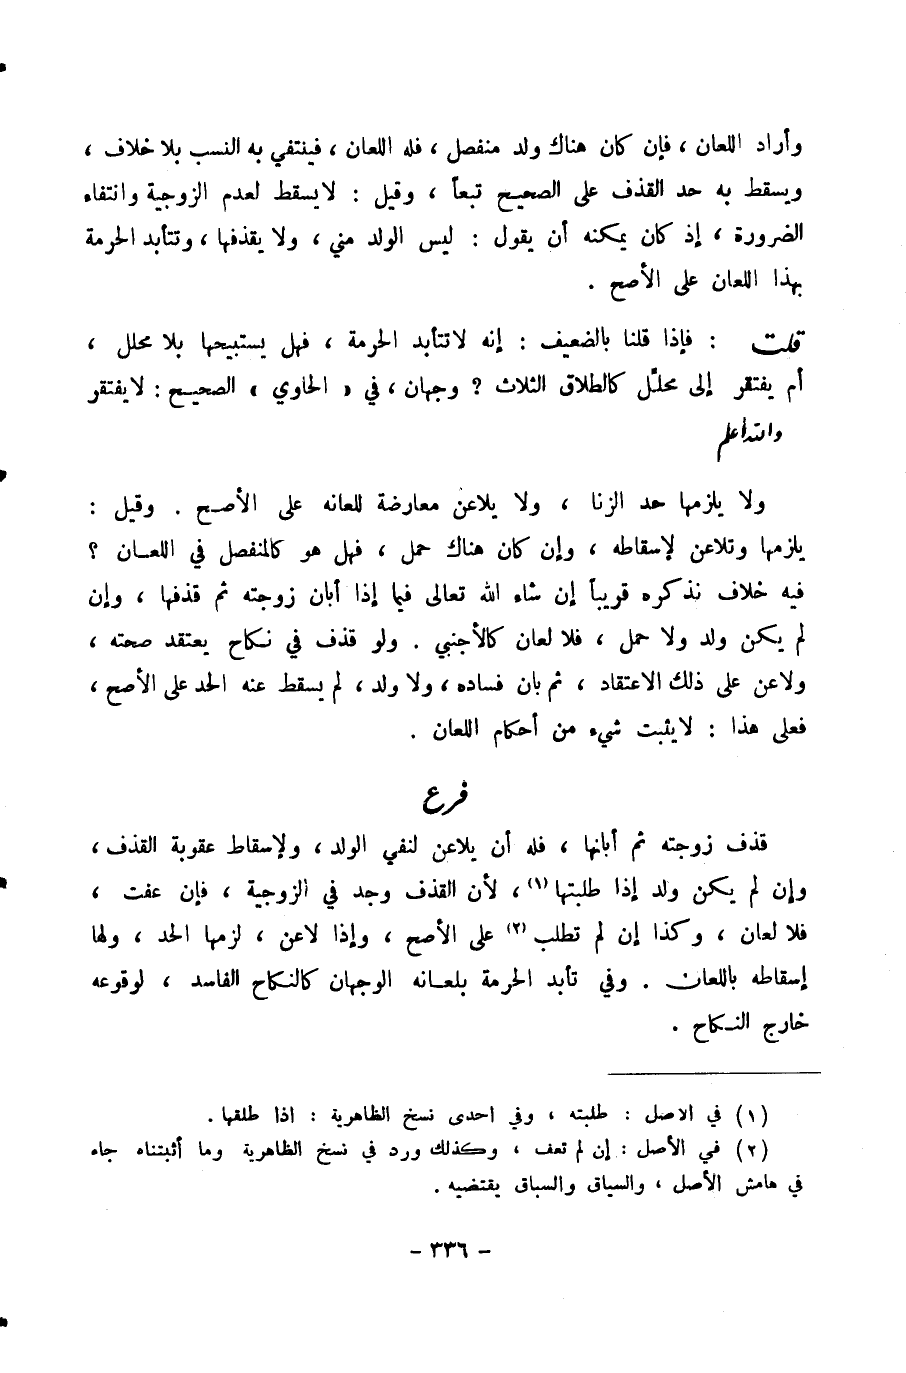 وأراد اللعان ، فإن كان هناك ولد منفصل ، فله اللعان ، فينتفي به النسب بلا خلاف ،
ويسقط به حد القذف على الصحيح تبعاً ، وقيل : لايسقط لعدم الزوجية وانتفاء
الضرورة ، إذ كان يمكنه أن يقول : ليس الولد مني ، ولا يقذفها ، وتتأبد الحرمة
بهذا اللعان على الأصح .
قلت : فإذا قلنا بالضعيف : إنه لاتتأبد الحرمة ، فهل يستبيحها بلا محلل ،
أم يفتقر إلى محلل كالطلاق الثلاث ? وجهان ، في « الحاوي » الصحيح : لايفتقر
والله أعلم
ولا يلزمها حد الزنا ، ولا يلاعن معارضة للعانه على الأصح . وقيل :
يلزمها وتلاعن لإسقاطه ، وإن كان هناك حمل ، فهل هو كالمنفصل في اللعان ؟
فيه خلاف نذكره قريباً إن شاء الله تعالى فيما إذا أبان زوجته ثم قذفها ، وإن
لم يكن ولد ولا حمل ، فلا لعان كالأجنبي . ولو قذف في نكاح يعتقد صحته ،
ولاعن على ذلك الاعتقاد ، ثم بان فساده ، ولا ولد ، لم يسقط عنه الحد على الأصح ،
فعلى هذا : لايثبت شيء من أحكام اللعان .
فرع
قذف زوجته ثم أبانها ، فله أن يلاعن لنفي الولد ، ولإسقاط عقوبة القذف ،
وإن لم يكن ولد إذا طلبتها (١) ، لأن القذف وجد في الزوجية ، فإن عفت ،
فلا لعان ، وكذا إن لم تطلب (٢) على الأصح ، وإذا لاعن ، لزمها الحد ، ولها
إسقاطه باللعان . وفي تأبد الحرمة بلعانه الوجهان كالنكاح الفاسد ، لوقوعه
خارج النكاح .
(١) في الاصل : طلبته ، وفي احدى نسخ الظاهرية : اذا طلقها .
(٢) في الأصل : إن لم تعف ، وكذلك ورد في نسخ الظاهرية وما أثبتناه جاء
في هامش الأصل ، والسياق والسباق يقتضيه .
- ٣٣٦ -